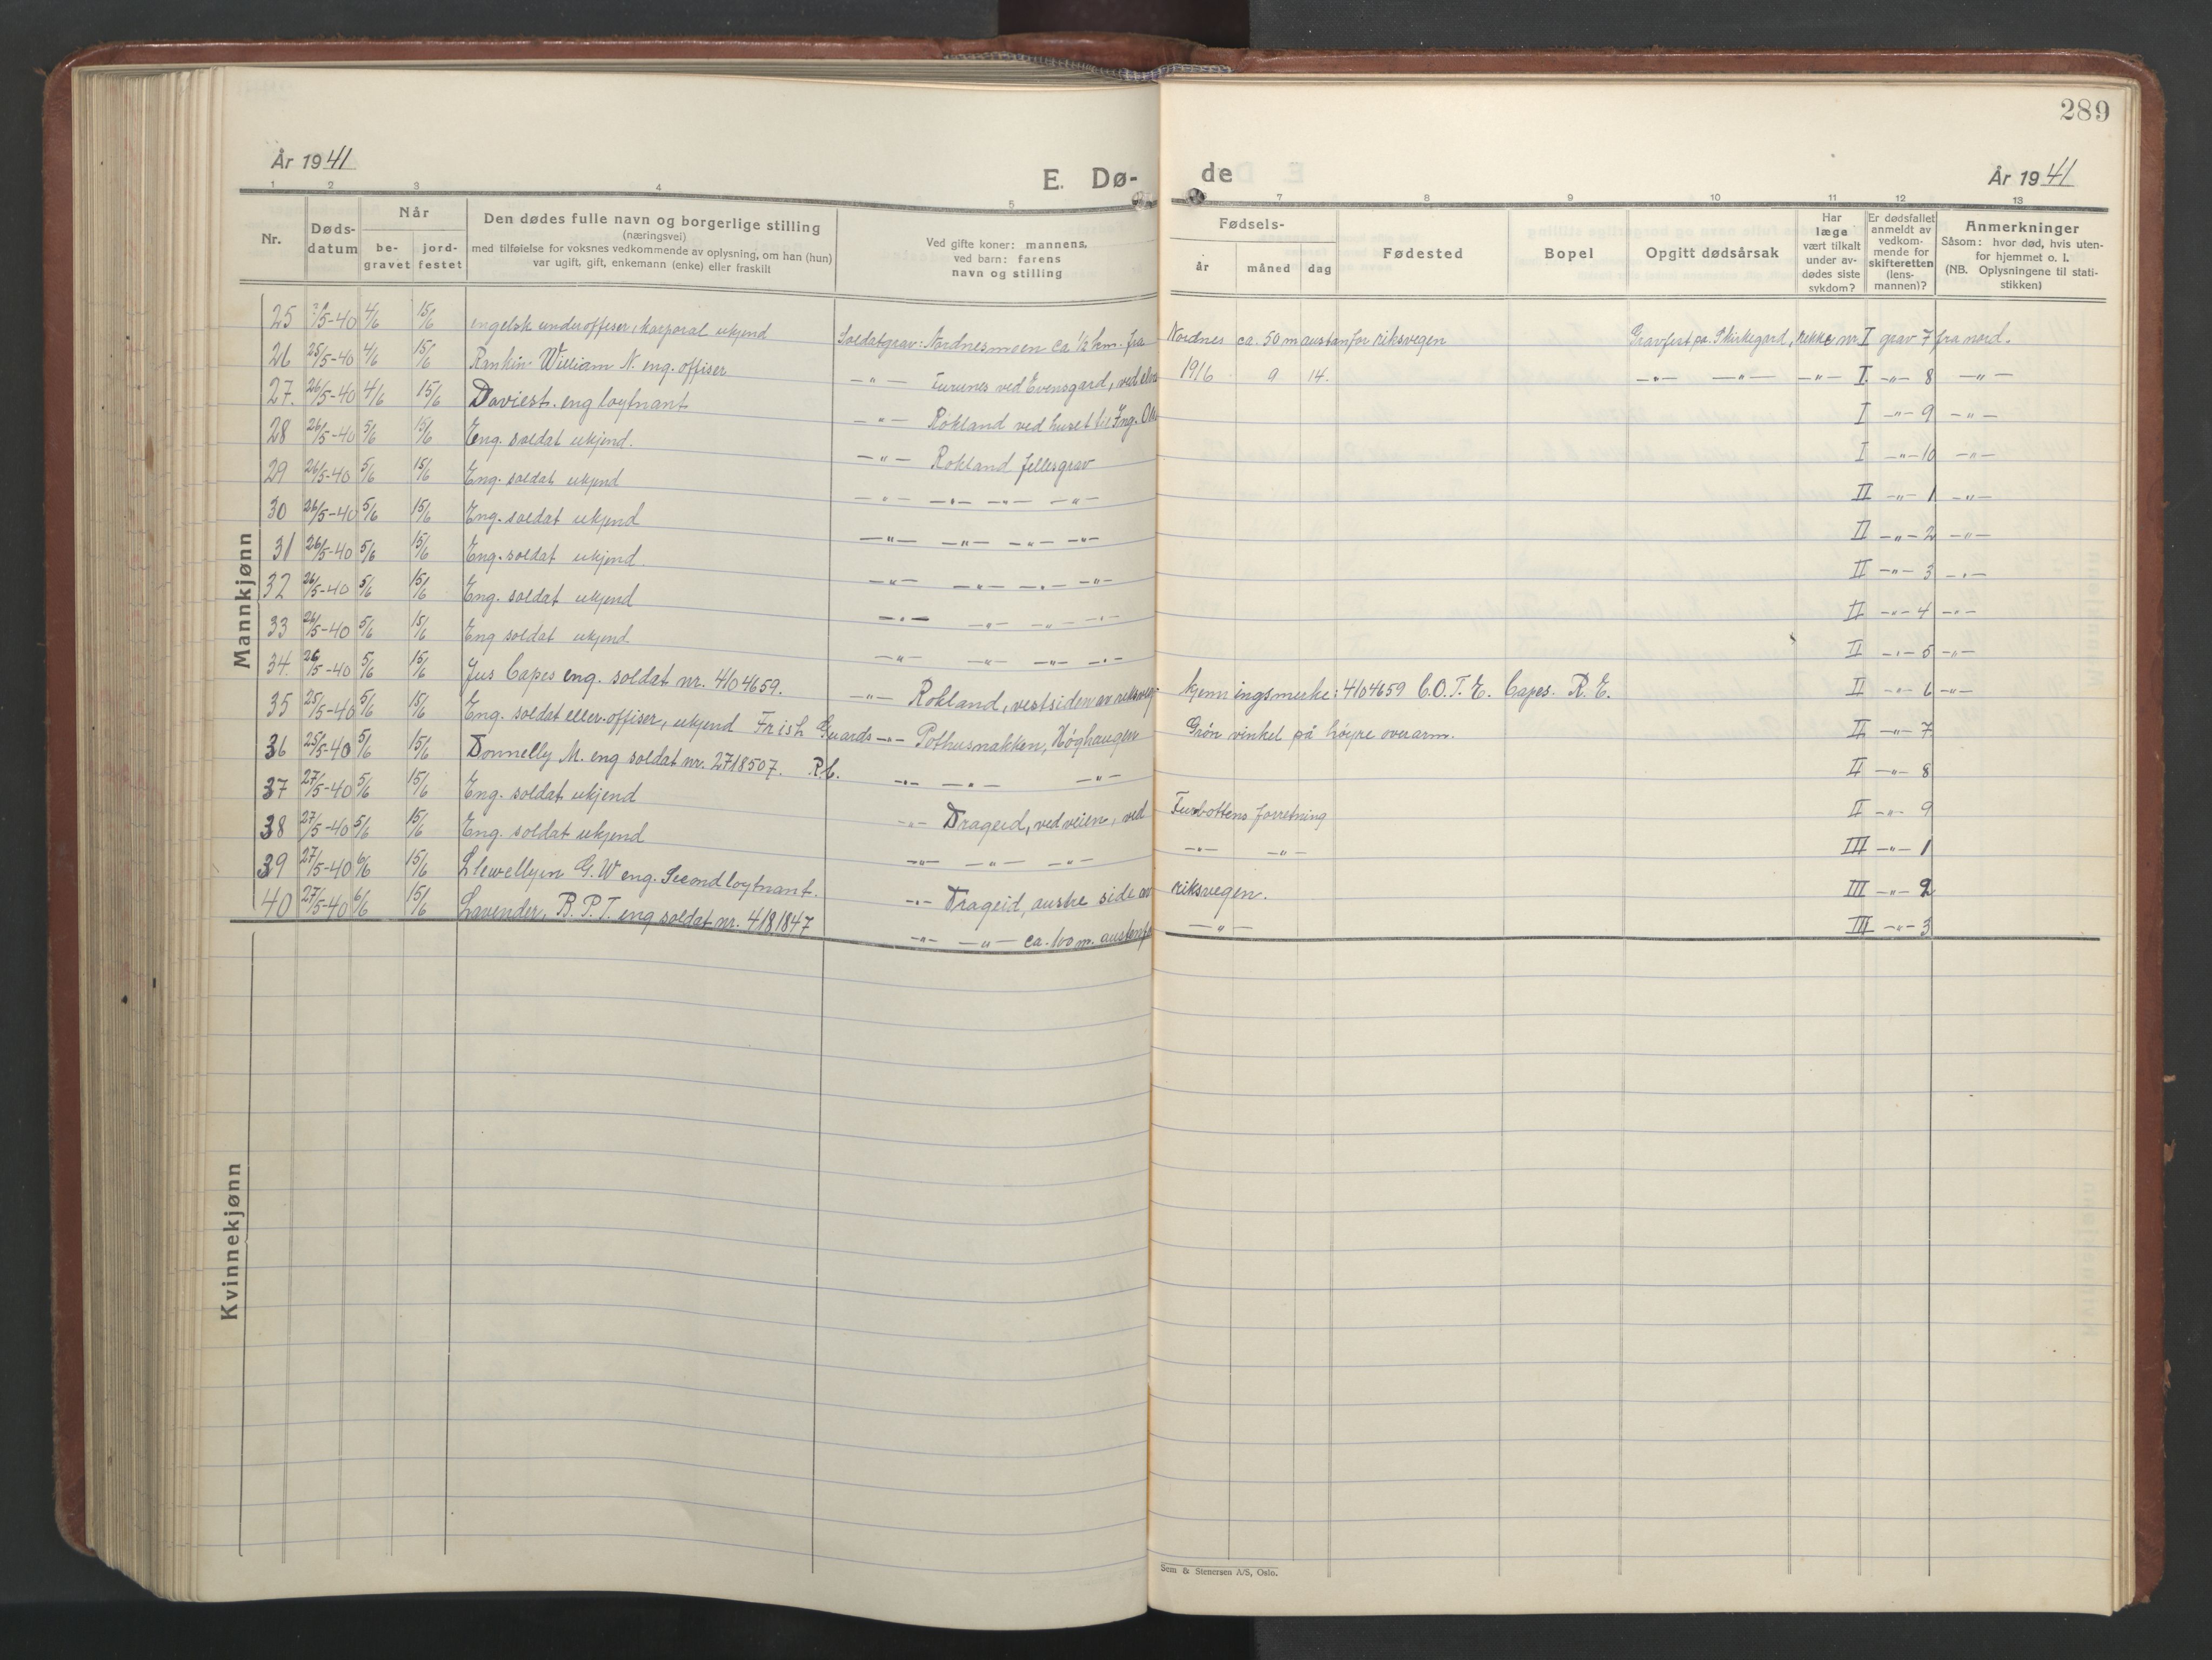 289
År 1941
E. Dø-
de
År 1941
1 2 3 4 5 7 8 9 10 11 12 13
Nr.
Døds-
datum
Når
be-
gravet
jord-
festet
Den dødes fulle navn og borgerlige stilling
(næringsvei)
med tilføielse for voksnes vedkommende av oplysning, om han (hun)
var ugift, gift, enkemann (enke) eller fraskilt
Ved gifte koner: mannens,
ved barn: farens
navn og stilling
Fødsels-
år måned dag
Fødested
Bopel
Opgitt dødsårsak
Har
læge
vært tilkalt
under av-
dødes siste
sykdom?
Er dødsfallet
anmeldt av
vedkom-
mende for
skifteretten
(lens-
mannen)?
Anmerkninger
Såsom: hvor død, hvis uten-
for hjemmet o. l.
(NB. Oplysningene til stati-
stikken)
Mannkjønn
25 /5-40 4/6 15/6 engelsk underoffiser, korporal ukjend Soldatgrav: Nordnesmoen ca 1/2 km. fra Nordnes ca. 50 m austanfor riksvegen kirkegard, rekke nr I grav 7 fra nord.
26 25/5-40 4/6 15/6 Rankin William N. eng. offiser -"- Furunes ved Evensgard, ved elva 1916 9 14. -"- -"- -"- I -"- 8 -"-
27. 26/5-40 4/6 15/6 Daviest. eng loytnant -"- Rokland ved huset til Ing. I -"- 9 -"-
28 26/5-40 5/6 15/6 Eng. soldat ukjend. -"- Rokland fellesgrav I -"- 10 -"-
29 26/5-40 5/6 15/6 Eng. soldat ukjend -"- -"- -"- -"- II -"- 1 -"-
30 26/5-40 5/6 15/6 Eng. soldat ukjend -"- -"- -"- -"- II -"- 2 -"-
31 26/5-40 5/6 15/6 Eng. soldat ukjend. -"- -"- -"- -"- II -"- 3 -"-
32 26/5-40 5/6 15/6 Eng. soldat ukjend -"- -"- -"- -"- II -"- 4 -"-
33 26/5-40 5/6 15/6 Eng soldat ukjend -"- -"- -"- -"- II -"- 5 -"-
34. 26/5-40 5/6 15/6 Jus Capes eng. soldat nr. 4104659. -"- Rokland, vestsiden av riksveg. kjenningsmerke: 4104659 C.O.T.E. Capes. R.E. II -"- 6 -"-
35 25/5-40 5/6 15/6 Eng. soldat eller offiser, ukjend Frish Guards -"- Pothusnakken, Høghaugen Grøn vinkel på høyre overarm. II -"- 7
36 25/5-40 5/6 15/6 Donnelly M. eng soldat nr. 2718507. R.C. -"- -"- -"- II -"- 8
37 27/5-40 5/6 15/6 Eng. soldat ukjend -"- Drageid, ved veien, ved forretning II -"- 9
38 27/5-40 5/6 15/6 Eng. soldat ukjend -"- -"- -"- -"- -"- III -"- 1
39 27/5-40 6/6 15/6 Llewellyin G. W eng. Secondloytnant. -"- Drageid, austre side av riksvegen. III -"- 2
40 27/5-40 6/6 15/6 Lavender, B. P. T. eng soldat nr. 4181847 -"- -"- ca. 100 m. austenfor -"- III -"- 3
Kvinnekjønn
Sem & Stenersen A/S, Oslo.